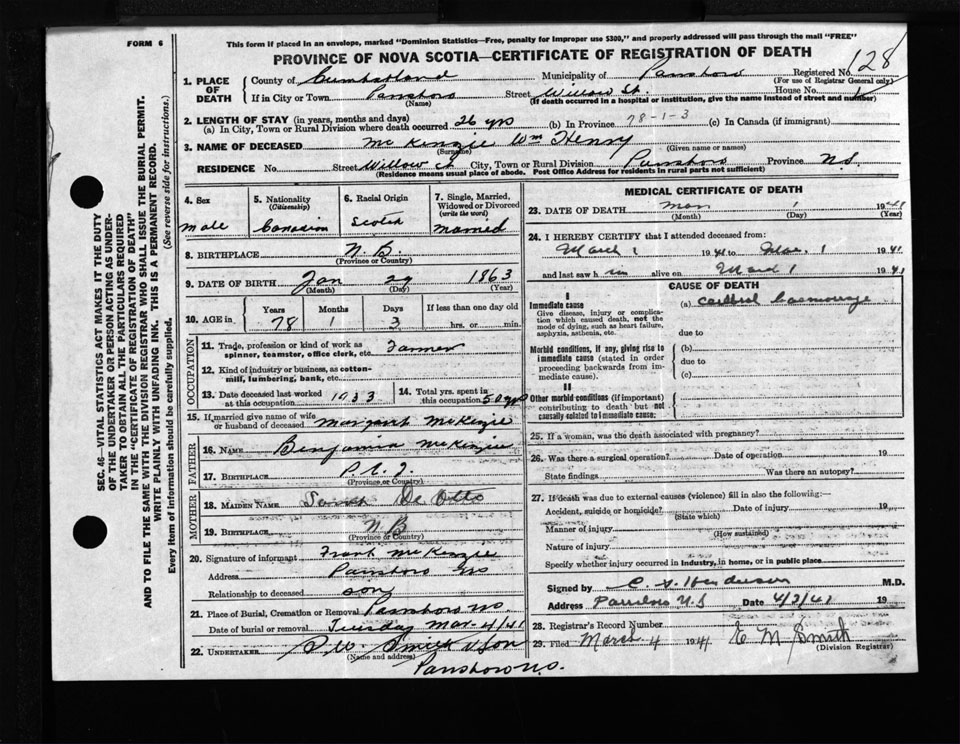 FORM 6
This form if placed in an envelope, marked "Dominion Statistics—Free, penalty for improper use $300," and properly addressed will pass through the mail "FREE"
PROVINCE OF NOVA SCOTIA—CERTIFICATE OF REGISTRATION OF DEATH
128
1. PLACE OF DEATH
County of Cumberland Municipality of Parrsboro Registered No.
(For use of Registrar General only)
If in City or Town Parrsboro Street Willow St. House No.
(Name) (If death occurred in a hospital or institution, give the name instead of street and number)
2. LENGTH OF STAY (in years, months and days)
(a) In City, Town or Rural Division where death occurred 26 yrs (b) In Province 78-1-3 (c) In Canada (if immigrant)
3. NAME OF DECEASED McKenzie Wm Henry
(Surname) (Given name or names)
RESIDENCE No. Street Willow St City, Town or Rural Division Parrsboro Province N.S.
(Residence means usual place of abode. Post Office Address for residents in rural parts not sufficient)
4. Sex
Male
5. Nationality (Citizenship)
Canadian
6. Racial Origin
Scotch
7. Single, Married, Widowed or Divorced (write the word)
Married
8. BIRTHPLACE N.B.
(Province or Country)
9. DATE OF BIRTH Jan 29 1863
(Month) (Day) (Year)
10. AGE in Years Months Days If less than one day old
78 1 3 hrs. or min.
OCCUPATION
11. Trade, profession or kind of work as spinner, teamster, office clerk, etc. Farmer
12. Kind of industry or business, as cotton-mill, lumbering, bank, etc.
13. Date deceased last worked at this occupation 1933
14. Total yrs. spent in this occupation 50 yrs
15. If married give name of wife or husband of deceased Margaret McKenzie
FATHER
16. NAME Benjamin McKenzie
17. BIRTHPLACE P.E.I.
(Province or Country)
MOTHER
18. MAIDEN NAME Sarah De Otto
19. BIRTHPLACE N.B
(Province or Country)
20. Signature of informant Frank McKenzie
Address Parrsboro NS
Relationship to deceased son
21. Place of Burial, Cremation or Removal Parrsboro NS.
Date of burial or removal Tuesday Mar-4/41
22. UNDERTAKER Smith & Son
(Name and address)
Parrsboro N.S.
MEDICAL CERTIFICATE OF DEATH
23. DATE OF DEATH Mar 1 1941
(Month) (Day)
24. I HEREBY CERTIFY that I attended deceased from:
March 1 1941 to Mar. 1 1941
and last saw him alive on March 1 1941
CAUSE OF DEATH
I
Immediate cause
Give disease, injury or complication which caused death, not the mode of dying, such as heart failure, asphyxia, asthenia, etc.
(a) Cerebral haemorrage
due to
Morbid conditions, if any, giving rise to immediate cause (stated in order proceeding backwards from immediate cause).
(b)
due to
(c)
II
Other morbid conditions (if important) contributing to death but not causally related to immediate cause.
25. If a woman, was the death associated with pregnancy?
26. Was there a surgical operation? Date of operation 19
State findings Was there an autopsy?
27. If death was due to external causes (violence) fill in also the following:—
Accident, suicide or homicide? Date of injury 19
(State which)
Manner of injury
(How sustained)
Nature of injury
Specify whether injury occurred in industry, in home, or in public place
Signed by Henderson M.D.
Address Parrsboro N.S Date 4/3/41 19
28. Registrar's Record Number
29. Filed March 4 1941 E M Smith
(Division Registrar)
SEC. 46—VITAL STATISTICS ACT MAKES IT THE DUTY
OF THE UNDERTAKER OR PERSON ACTING AS UNDER-
TAKER TO OBTAIN ALL THE PARTICULARS REQUIRED
IN THE "CERTIFICATE OF REGISTRATION OF DEATH"
AND TO FILE THE SAME WITH THE DIVISION REGISTRAR WHO SHALL ISSUE THE BURIAL PERMIT.
WRITE PLAINLY WITH UNFADING INK. THIS IS A PERMANENT RECORD.
Every item of information should be carefully supplied. (See reverse side for instructions.)